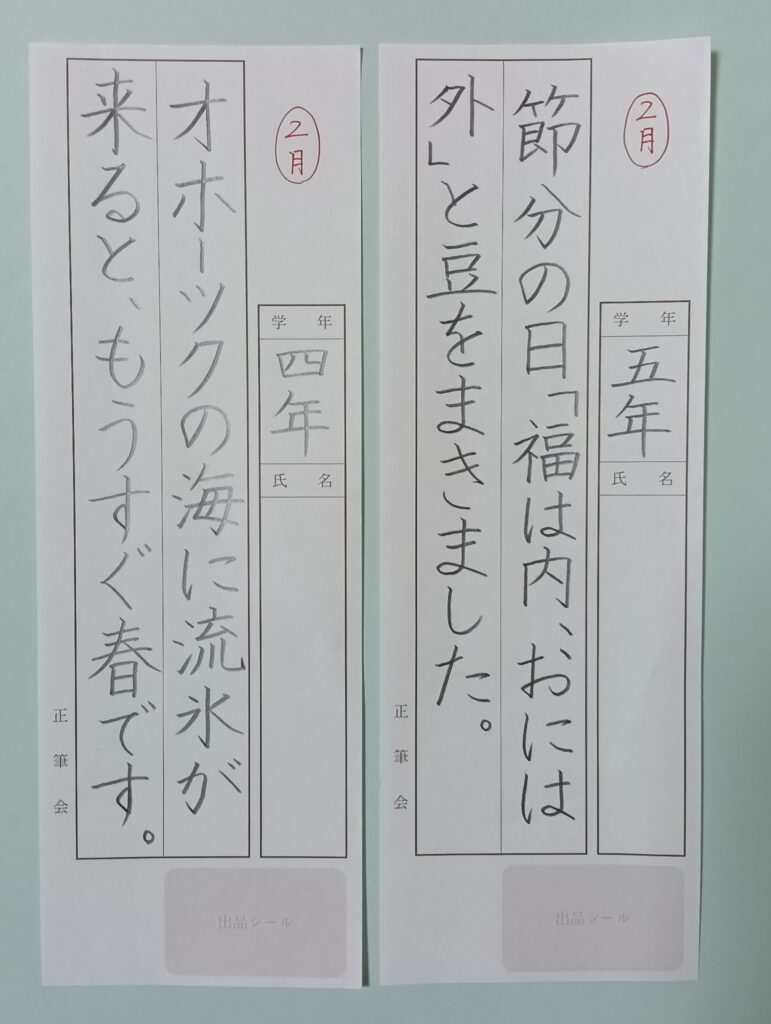 2月
学年
五年
氏名
節分の日「福は内、おには
外」と豆をまきました。
正筆会
出品シール
2月
学年
四年
氏名
オホーツクの海に流氷が
来ると、もうすぐ春です。
正筆会
出品シール